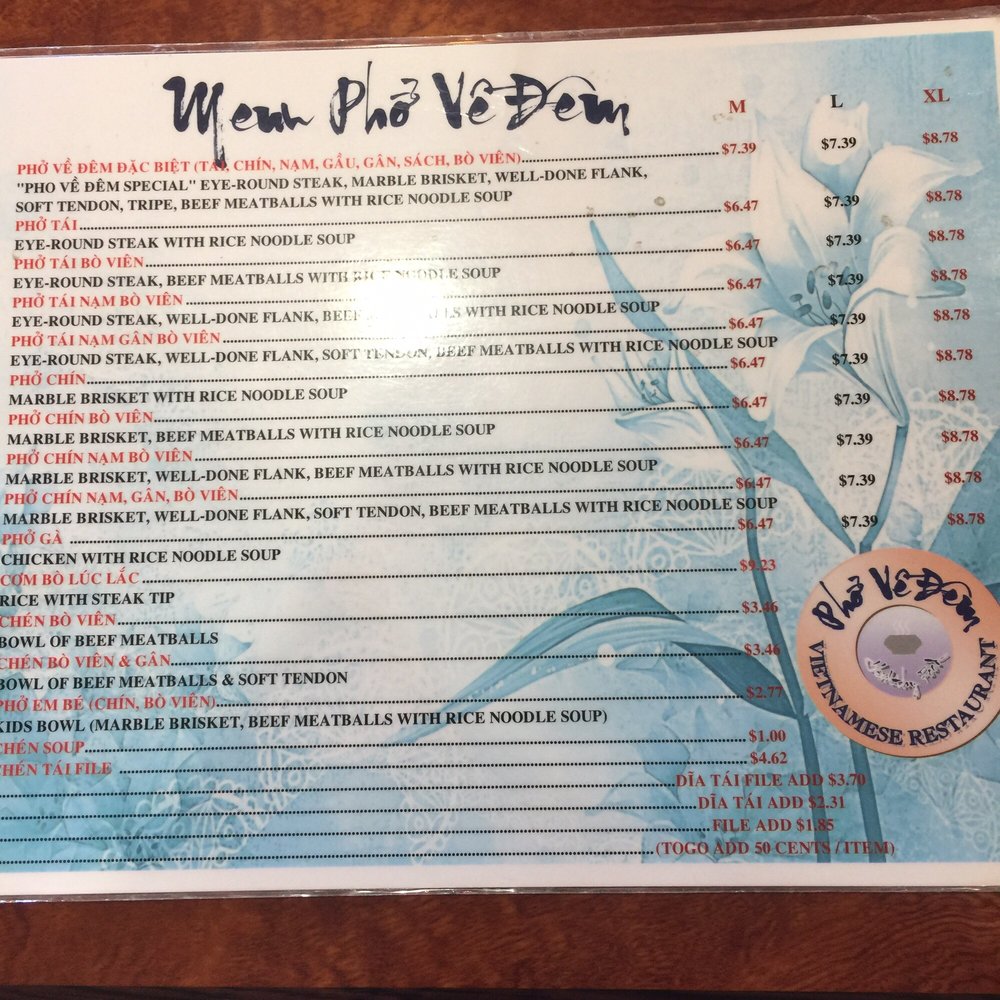 Menu Phở Về Đêm
M L XL
PHỞ VỀ ĐÊM ĐẶC BIỆT (TÁI, CHÍN, NẠM, GẦU, GÂN, SÁCH, BÒ VIÊN) $7.39 $7.39 $8.78
"PHO VỀ ĐÊM SPECIAL" EYE-ROUND STEAK, MARBLE BRISKET, WELL-DONE FLANK,
SOFT TENDON, TRIPE, BEEF MEATBALLS WITH RICE NOODLE SOUP
PHỞ TÁI $6.47 $7.39 $8.78
EYE-ROUND STEAK WITH RICE NOODLE SOUP
PHỞ TÁI BÒ VIÊN $6.47 $7.39 $8.78
EYE-ROUND STEAK, BEEF MEATBALLS WITH RICE NOODLE SOUP
PHỞ TÁI NẠM BÒ VIÊN $6.47 $7.39 $8.78
EYE-ROUND STEAK, WELL-DONE FLANK, BEEF MEATBALLS WITH RICE NOODLE SOUP
PHỞ TÁI NẠM GÂN BÒ VIÊN $6.47 $7.39 $8.78
EYE-ROUND STEAK, WELL-DONE FLANK, SOFT TENDON, BEEF MEATBALLS WITH RICE NOODLE SOUP
PHỞ CHÍN $6.47 $7.39 $8.78
MARBLE BRISKET WITH RICE NOODLE SOUP
PHỞ CHÍN BÒ VIÊN $6.47 $7.39 $8.78
MARBLE BRISKET, BEEF MEATBALLS WITH RICE NOODLE SOUP
PHỞ CHÍN NẠM BÒ VIÊN $6.47 $7.39 $8.78
MARBLE BRISKET, WELL-DONE FLANK, BEEF MEATBALLS WITH RICE NOODLE SOUP
PHỞ CHÍN NẠM, GÂN, BÒ VIÊN $6.47 $7.39 $8.78
MARBLE BRISKET, WELL-DONE FLANK, SOFT TENDON, BEEF MEATBALLS WITH RICE NOODLE SOUP
PHỞ GÀ $6.47 $7.39 $8.78
CHICKEN WITH RICE NOODLE SOUP
CƠM BÒ LÚC LẮC $9.23
RICE WITH STEAK TIP
CHÉN BÒ VIÊN $3.46
BOWL OF BEEF MEATBALLS
CHÉN BÒ VIÊN & GÂN $3.46
BOWL OF BEEF MEATBALLS & SOFT TENDON
PHỞ EM BÉ (CHÍN, BÒ VIÊN) $2.77
KIDS BOWL (MARBLE BRISKET, BEEF MEATBALLS WITH RICE NOODLE SOUP)
CHÉN SOUP $1.00
CHÉN TÁI FILE $4.62
DĨA TÁI FILE ADD $3.70
DĨA TÁI ADD $2.31
FILE ADD $1.85
(TOGO ADD 50 CENTS / ITEM)
Phở Về Đêm
VIETNAMESE RESTAURANT